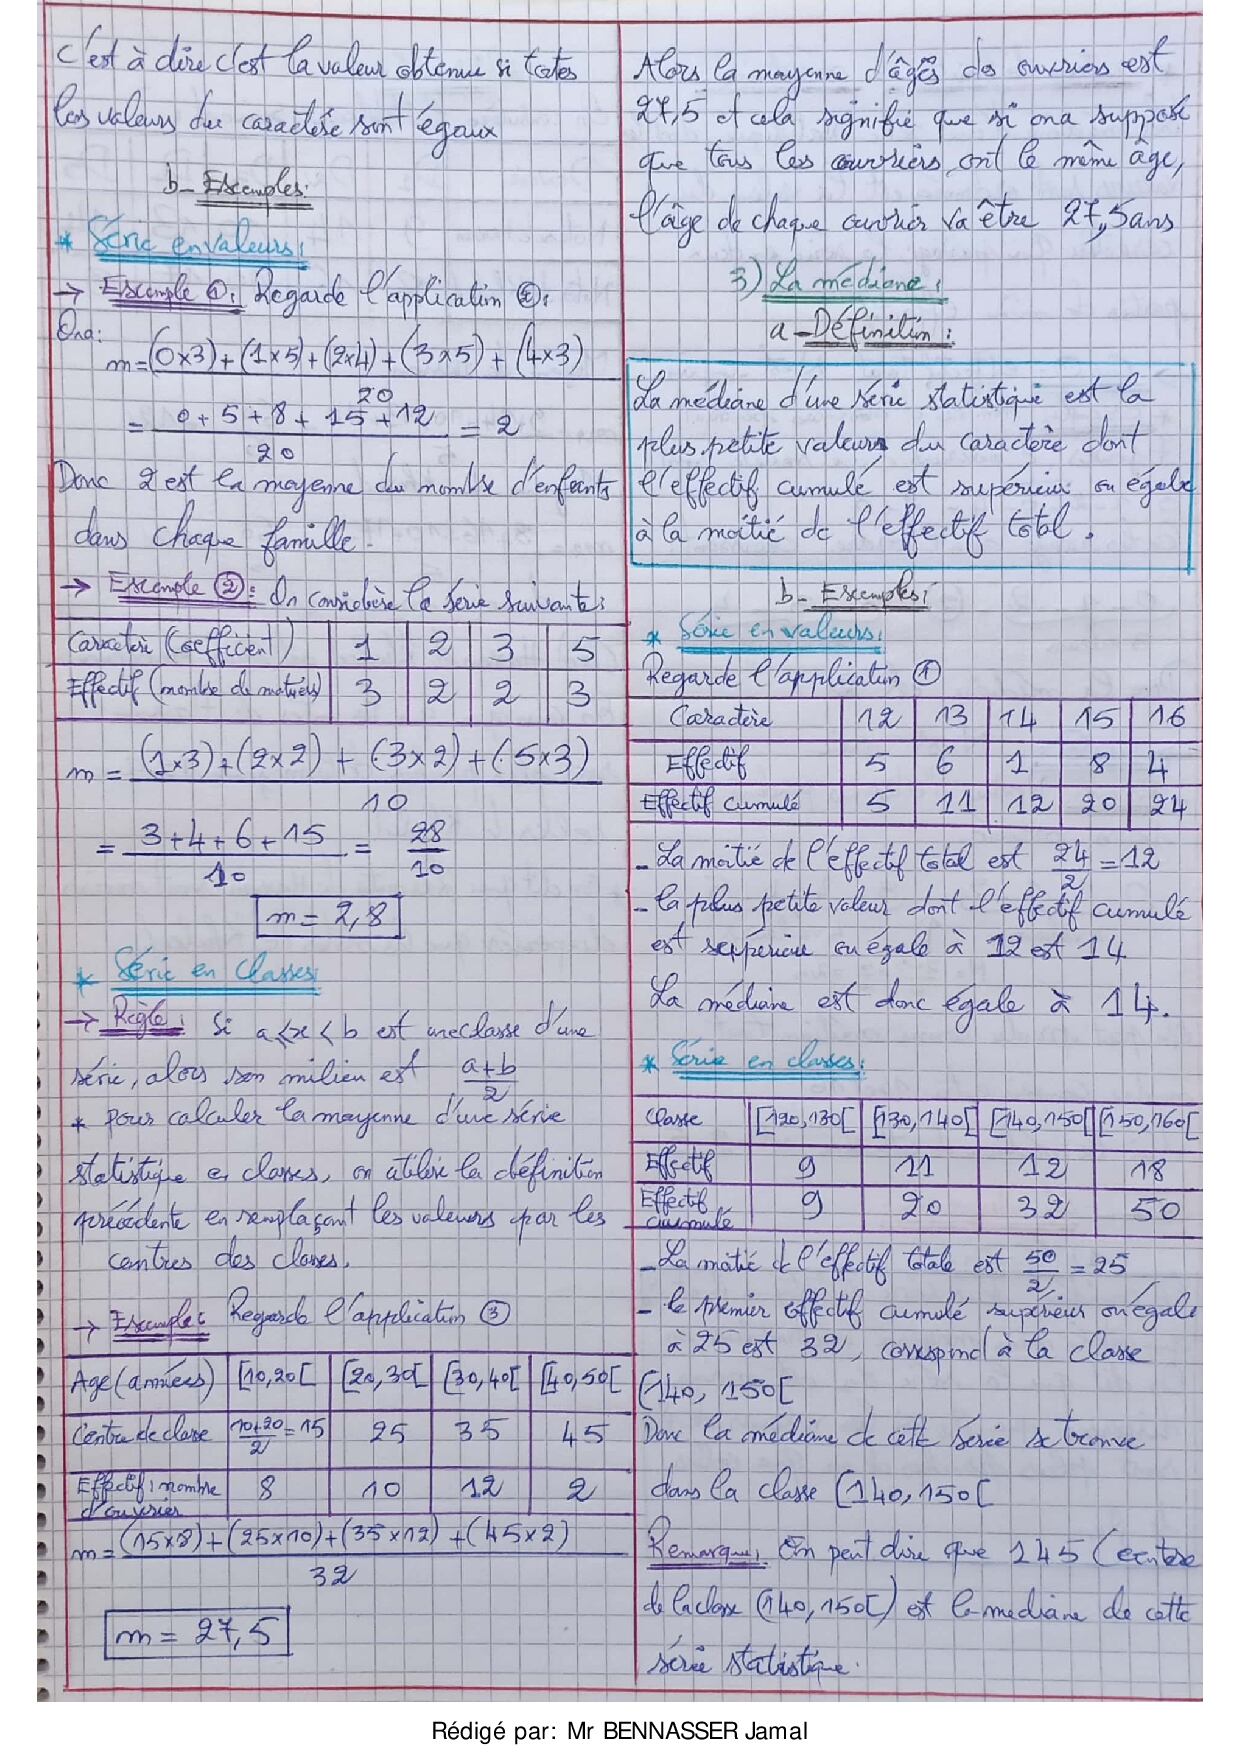 C'est à dire c'est la valeur obtenue si totes
les valeurs du caractère sont égaux
b- Exemples:
* Série en valeurs:
→ Exemple ①: Regarde l'application ②:
Ona:
m = (0x3) + (1x5) + (2x4) + (3x5) + (4x3) / 20
= 0 + 5 + 8 + 15 + 12 / 20 = 2
Donc 2 est la moyenne du nombre d'enfants
dans chaque famille.
→ Exemple ②: On considère la série suivante:
Caractère (Coefficient) 1 2 3 5
Effectif (nombre de matières) 3 2 2 3
m = (1x3) + (2x2) + (3x2) + (5x3) / 10
= 3+4+6+15 / 10 = 28 / 10
m = 2,8
* Série en classes
→ Règle: Si a ⩽ x < b est une classe d'une
série, alors son milieu est a+b / 2
* pour calculer la moyenne d'une série
statistique en classes, on utilise la définition
précédente en remplaçant les valeurs par les
centres des classes.
→ Exemple: Regarde l'application ③
Age (années) [10,20[ [20,30[ [30,40[ [40,50[
Centre de classe 10+20 / 2 = 15 25 35 45
Effectif: nombre d'ouvriers 8 10 12 2
m = (15x8) + (25x10) + (35x12) + (45x2) / 32
m = 27,5
Alors la moyenne d'âges des ouvriers est
27,5 et cela signifie que si ona supposé
que tous les ouvriers ont le même âge,
l'âge de chaque ouvrier va être 27,5ans
3) La médiane:
a - Définitin:
La médiane d'une série statistique est la
plus petite valeurs du caractère dont
l'effectif cumulé est supérieur ou égale
à la moitié de l'effectif total.
b- Exemples:
* Série en valeurs:
Regarde l'application ①
Caractère 12 13 14 15 16
Effectif 5 6 1 8 4
Effectif cumulé 5 11 12 20 24
- La moitié de l'effectif total est 24 / 2 = 12
- la plus petite valeur dont l'effectif cumulé
est supérieur ou égale à 12 est 14
La médiane est donc égale à 14.
* Série en classes:
Classe [120,130[ [130,140[ [140,150[ [150,160[
Effectif 9 11 12 18
Effectif cumulé 9 20 32 50
- La moitié de l'effectif totale est 50 / 2 = 25
- le premier effectif cumulé supérieur ou égale
à 25 est 32, correspond à la classe
[140, 150[
Donc la médiane de cette série se trouve
dans la classe [140,150[
Remarque: On peut dire que 145 (centre
de la classe [140,150[) est la mediane de cette
série statistique.
Rédigé par: Mr BENNASSER Jamal